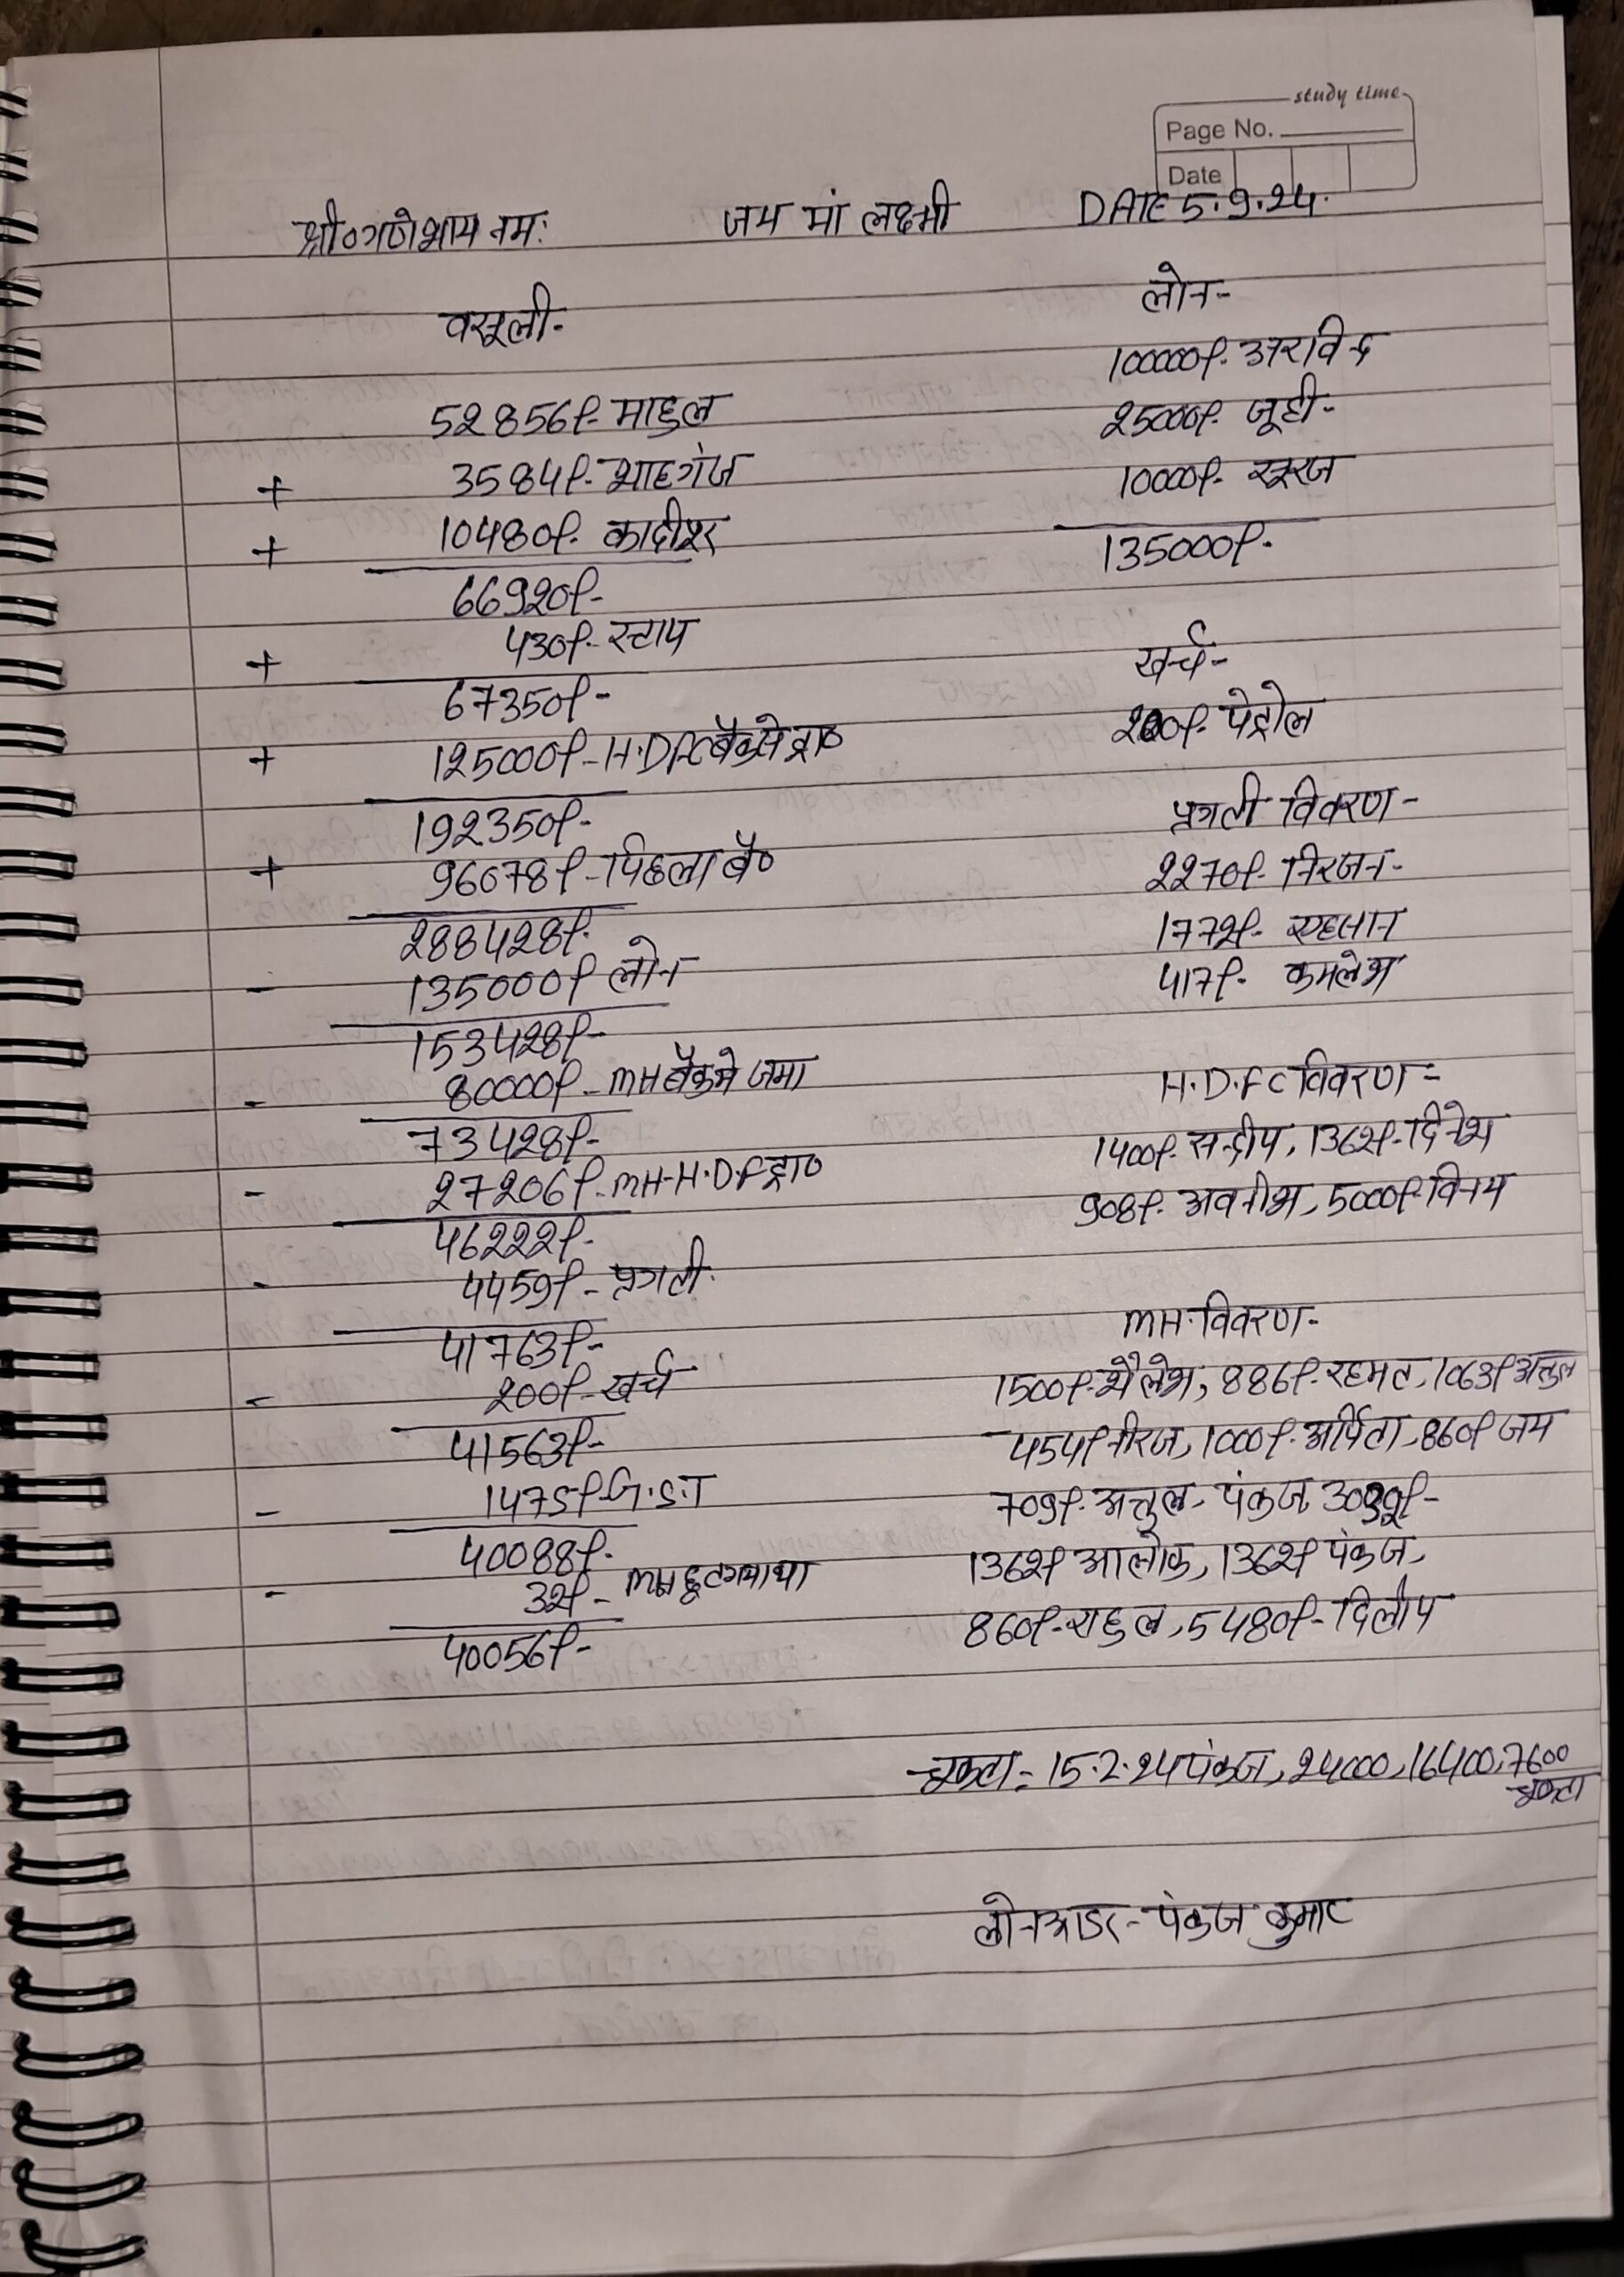 study time
Page No.
Date
श्री०गणेशाय नमः जय मां लक्ष्मी DATE 5.9.24.
वसूली-
52856/- माहुल
+ 3584/- शाहगंज
+ 10480/- कादीपुर
66920/-
+ 430/- स्टाप
67350/-
+ 125000/- H.DFC बैंक से ट्रा०
192350/-
+ 96078/- पिछला बै०
288428/-
- 135000/- लोन
153428/-
- 80000/- MH बैंक मे जमा
73428/-
- 27206/- MH-H.D.F ट्रा०
46222/-
- 4459/- प्रगती
41763/-
- 200/- खर्च
41563/-
- 1475/- G.S.T
40088/-
- 32/- MH छूट गया था
40056/-
लोन-
100000/- अरविन्द
25000/- जूही-
10000/- सूरज
135000/-
खर्च-
200/- पेट्रोल
प्रगती विवरण-
2270/- निरजन-
1772/- एहसान
417/- कमलेश
H.D.FC विवरण-
1400/- सन्दीप, 1362/- दिनेश
908/- अवनीश, 5000/- विनय
MH-विवरण-
1500/- शैलेश, 886/- रहमत, 1063/- अतुल
454/- नीरज, 1000/- अर्पिता, 860/- जय
709/- अतुल, पंकज
1362/- आलोक, 1362/- पंकज,
860/- राहुल, 5480/- दिलीप
चुकता = 15.2.24 पंकज, 24000, 16400, 7600
चुकता
लोन आडर- पंकज कुमार